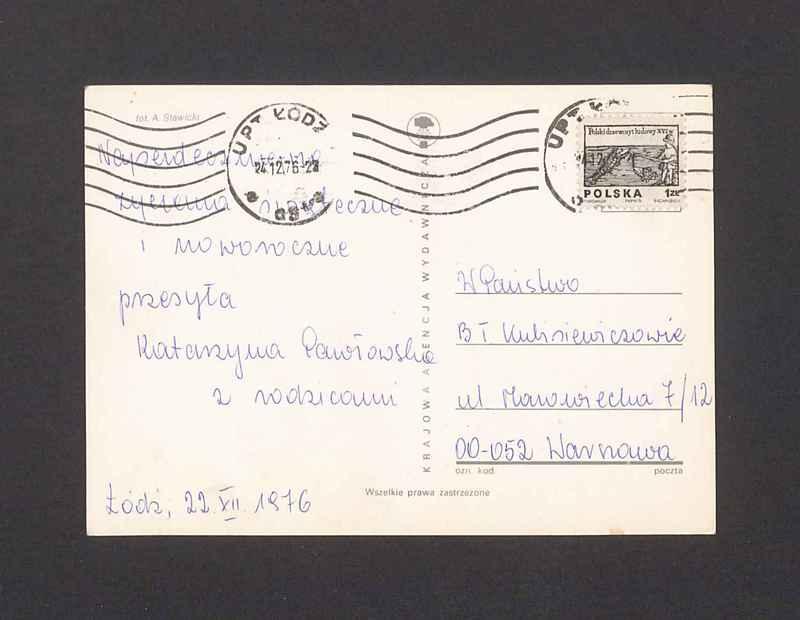 fot. A. Stawicki
Najserdeczniejsze
życzenia świąteczne
i noworoczne
przesyła
Katarzyna Pawłowska
z rodzicami
Łódź, 22 XII 1976
UPT ŁÓDŹ
24.12.76-2
KRAJOWA AGENCJA WYDAWNICZA
Wszelkie prawa zastrzeżone
UPT
Polski drzeworyt ludowy XVI w
POLSKA 1 ZŁ
W Państwo
B T Kulisiewiczowie
ul Mazowiecka 7/12
00-052 Warszawa
ozn. kod poczta